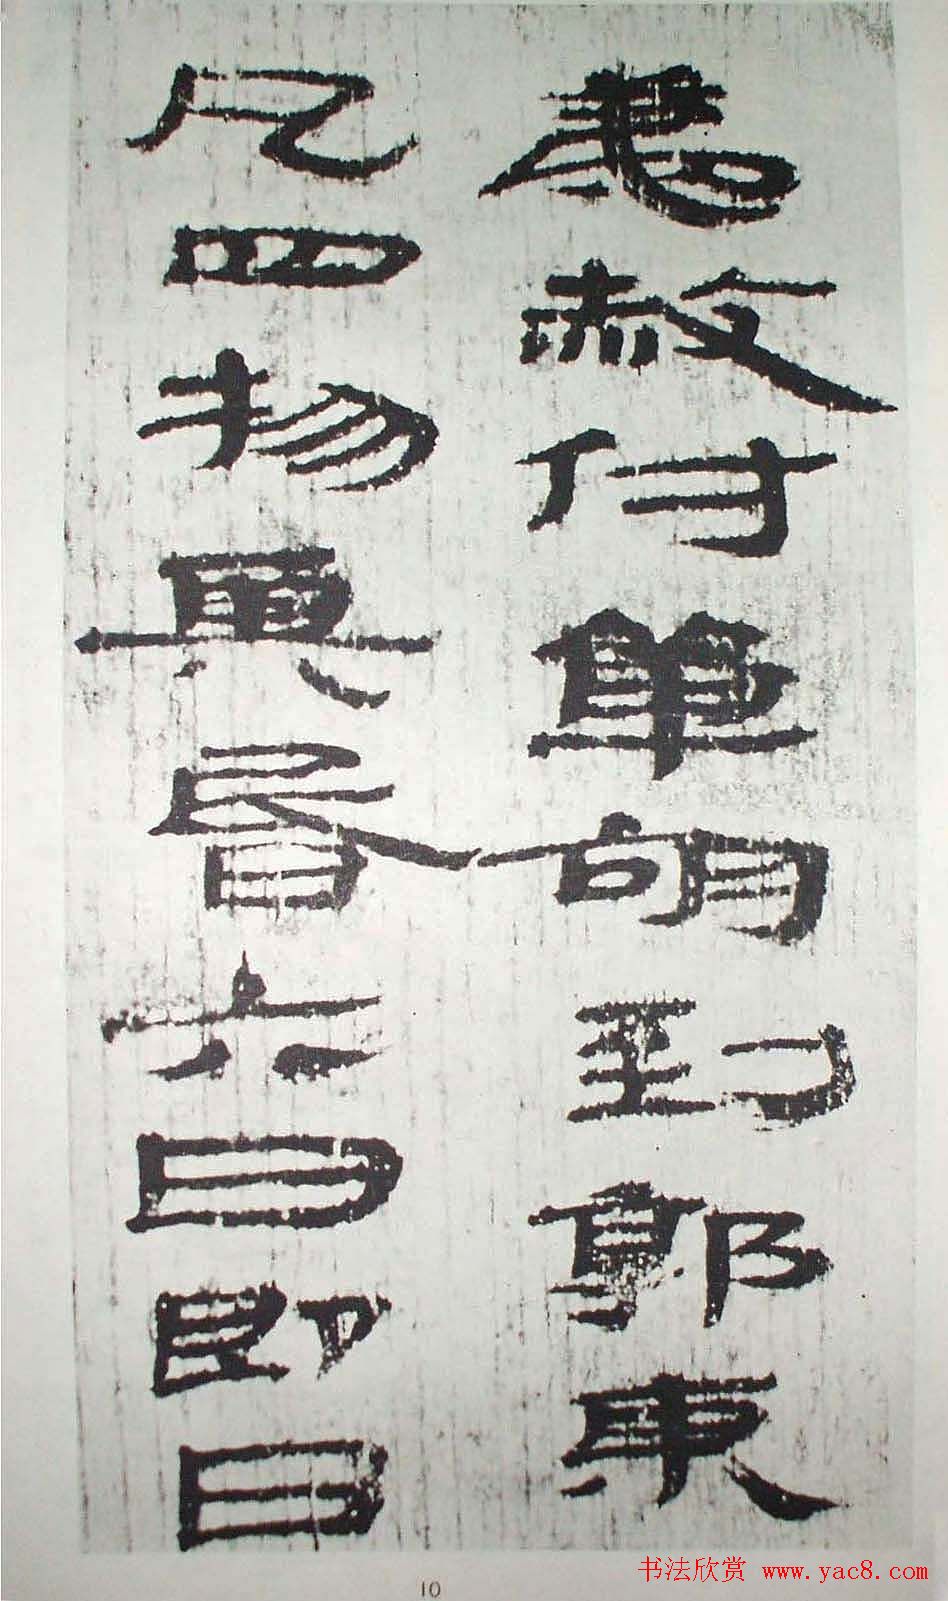 赦付胡到郭東
凡四物昏六日即日
10
书法欣赏 www.yac8.com